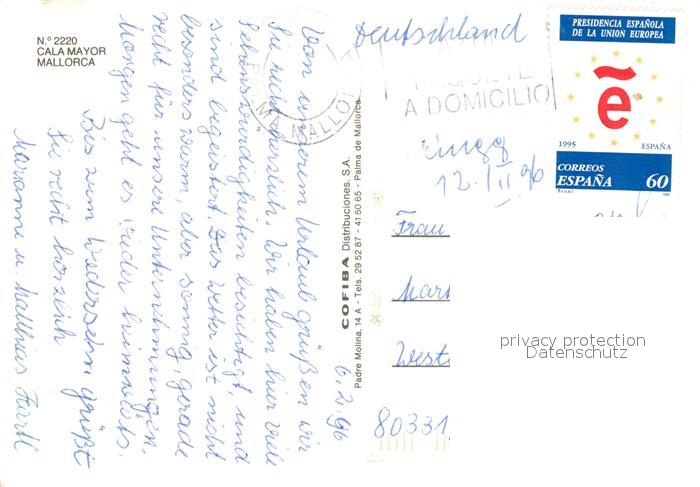 N.º 2220
CALA MAYOR
MALLORCA
6.2.96
Von unserem Urlaub grüßen wir
Sie recht herzlich. Wir haben hier viele
Sehenswürdigkeiten besichtigt, und
sind begeistert. Das Wetter ist nicht
besonders warm, aber sonnig, gerade
recht für unsere Unternehmungen.
Morgen geht es wieder heimwärts.
Bis zum Wiedersehn grüßt
Sie recht herzlich
Marianne u. Matthias
COFIBA Distribuciones, S.A.
Padre Molina, 14 A - Tels. 29 52 87 - 41 50 65 - Palma de Mallorca
Deutschland
PALMA MALLO
A DOMICILIO
PRESIDENCIA ESPAÑOLA
DE LA UNION EUROPEA
ẽ
1995 ESPAÑA
CORREOS
ESPAÑA 60
12./II 96
Frau
Mari
West
80331
privacy protection
Datenschutz